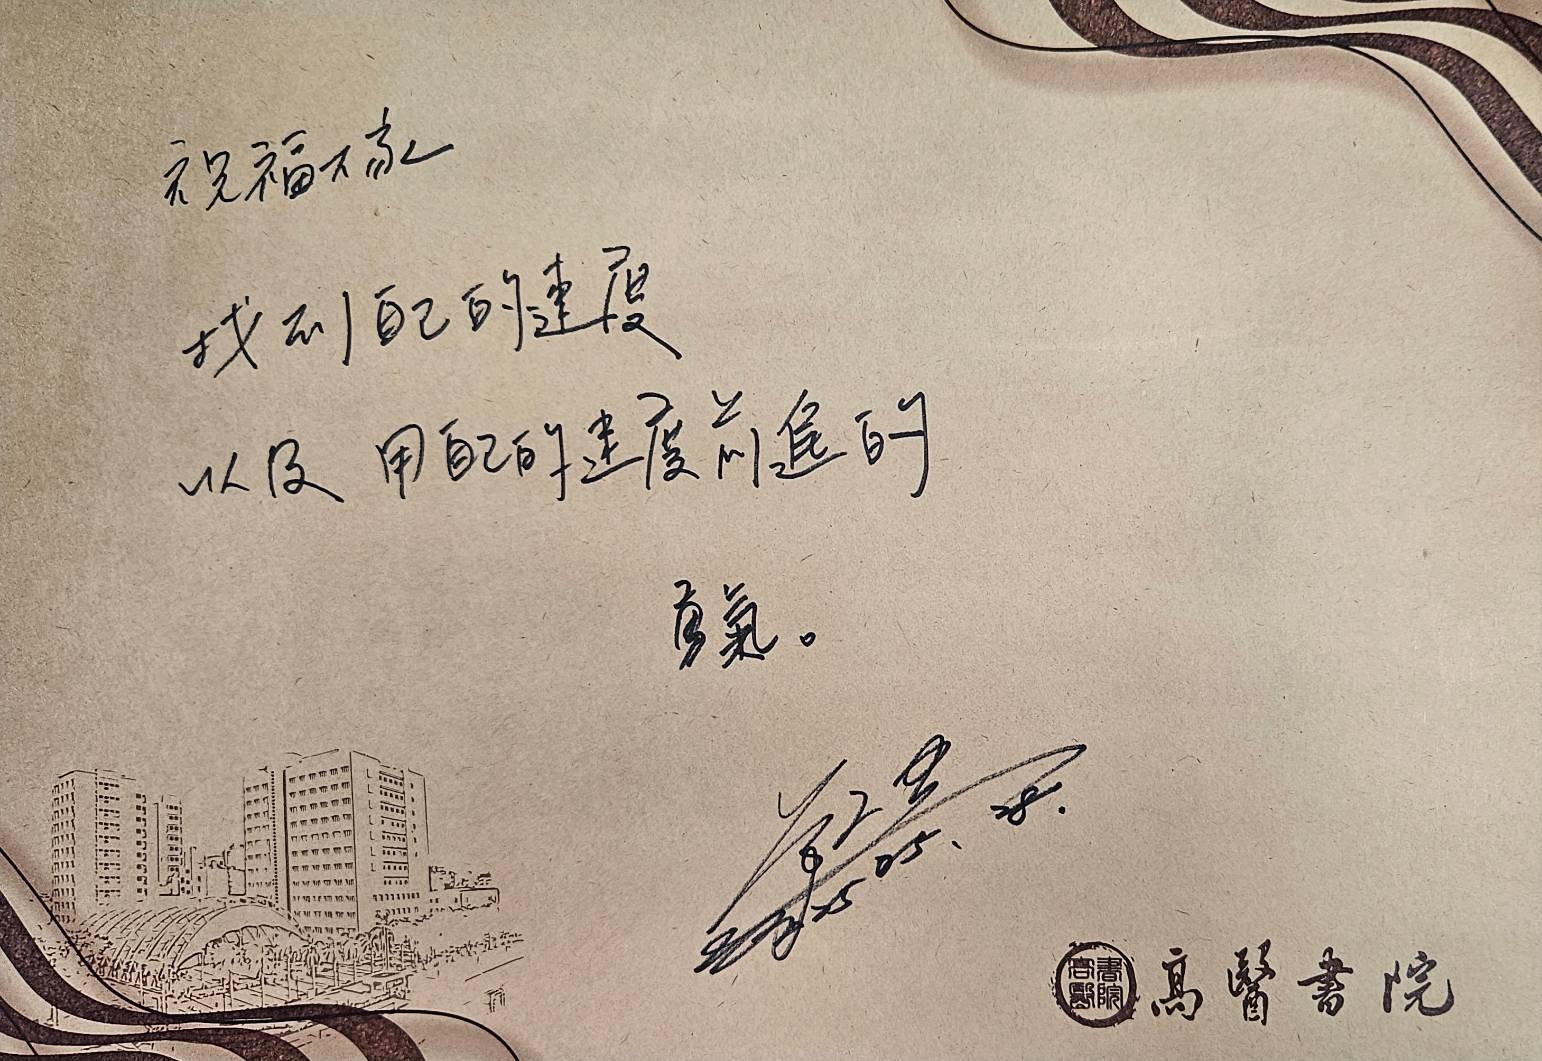 祝福大家
找到自己的速度
以及 用自己的速度前進的
勇氣。
2025.05.28.
高醫書院
高醫書院